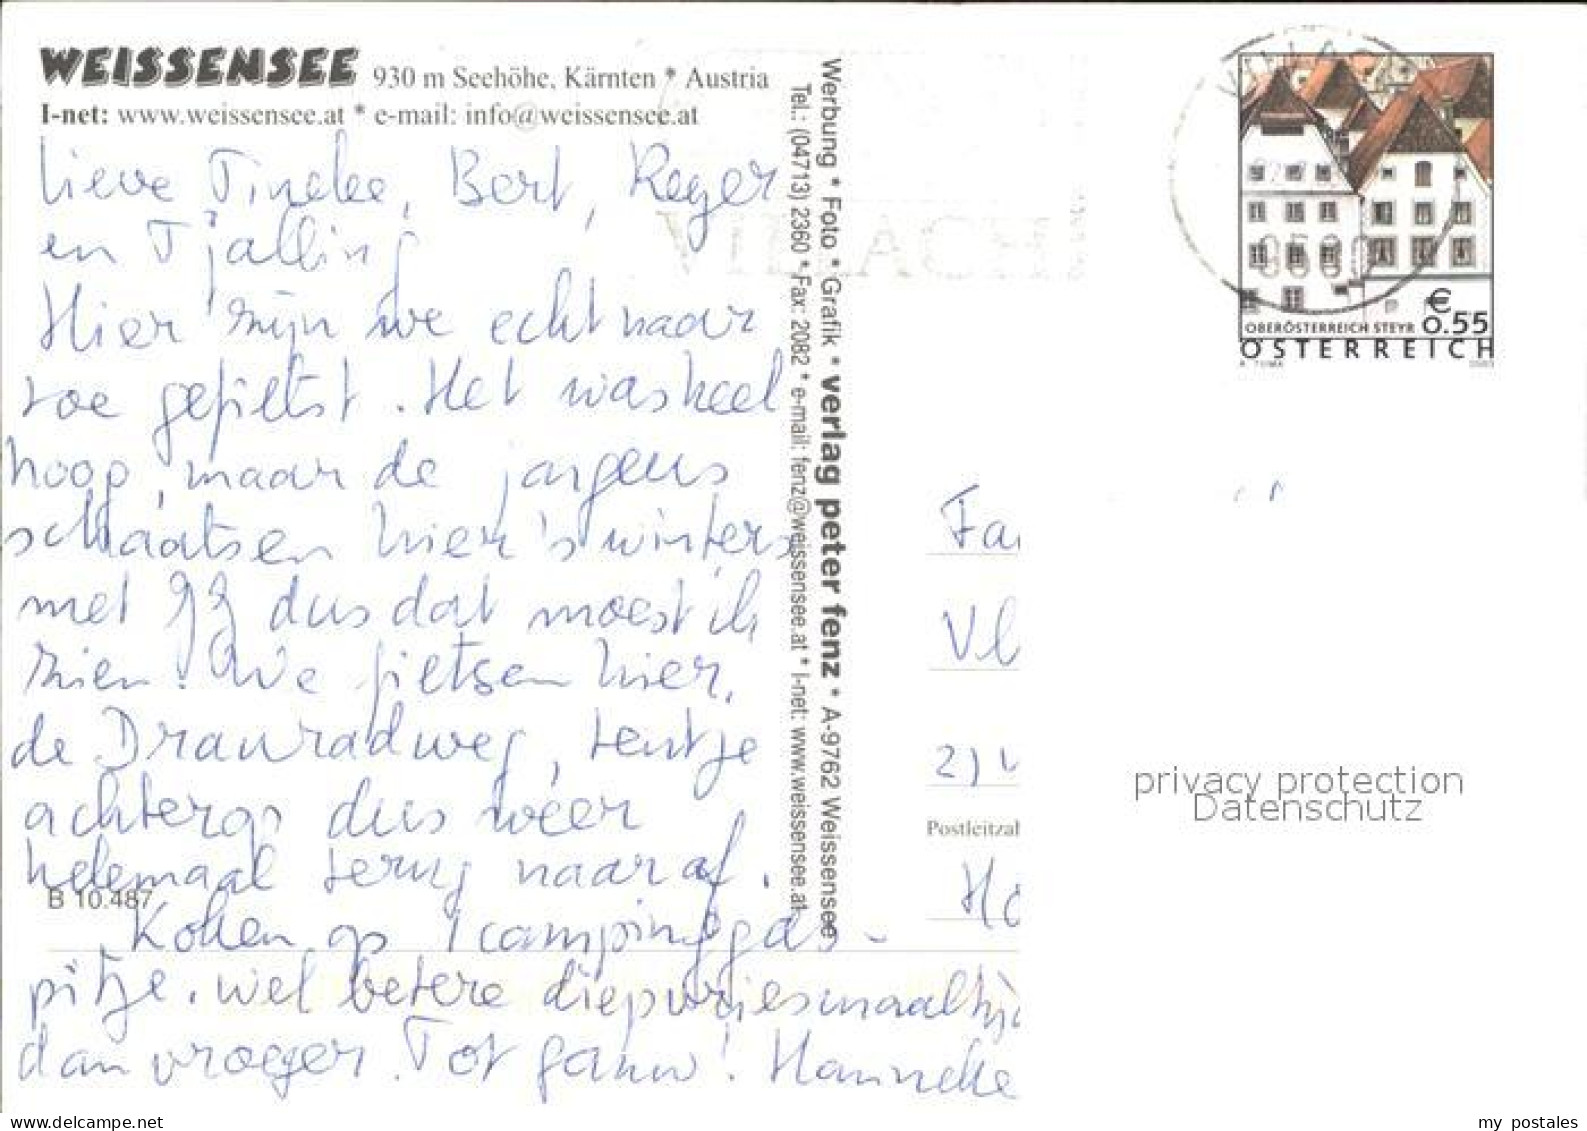 WEISSENSEE 930 m Seehöhe, Kärnten * Austria
I-net: www.weissensee.at * e-mail: info@weissensee.at
Lieve Tineke, Bert, Reger
en Tjalling
Hier zijn we echt naar
toe gefietst. Het was heel
hoog, maar de jongens
schaatsen hier 's winters
met JJ dus dat moest ik
zien. We fietsen hier,
de Drauradweg, tentje
achterop dus weer
helemaal terug naar af.
Koken op 1 campinggas-
pitje. Wel betere diepvriesmaaltij
dan vroeger. Tot gauw! Hanneke
B 10.487
Werbung * Foto * Grafik * verlag peter fenz * A-9762 Weissensee
Tel.: (04713) 2360 * Fax: 2082 * e-mail: fenz@weissensee.at * I-net: www.weissensee.at
VILLACH
9500
€ 0.55
OBERÖSTERREICH STEYR
ÖSTERREICH
A. TUMA 2003
Fa
Vl
Postleitzahl
Ho
privacy protection
Datenschutz
www.delcampe.net
my postales